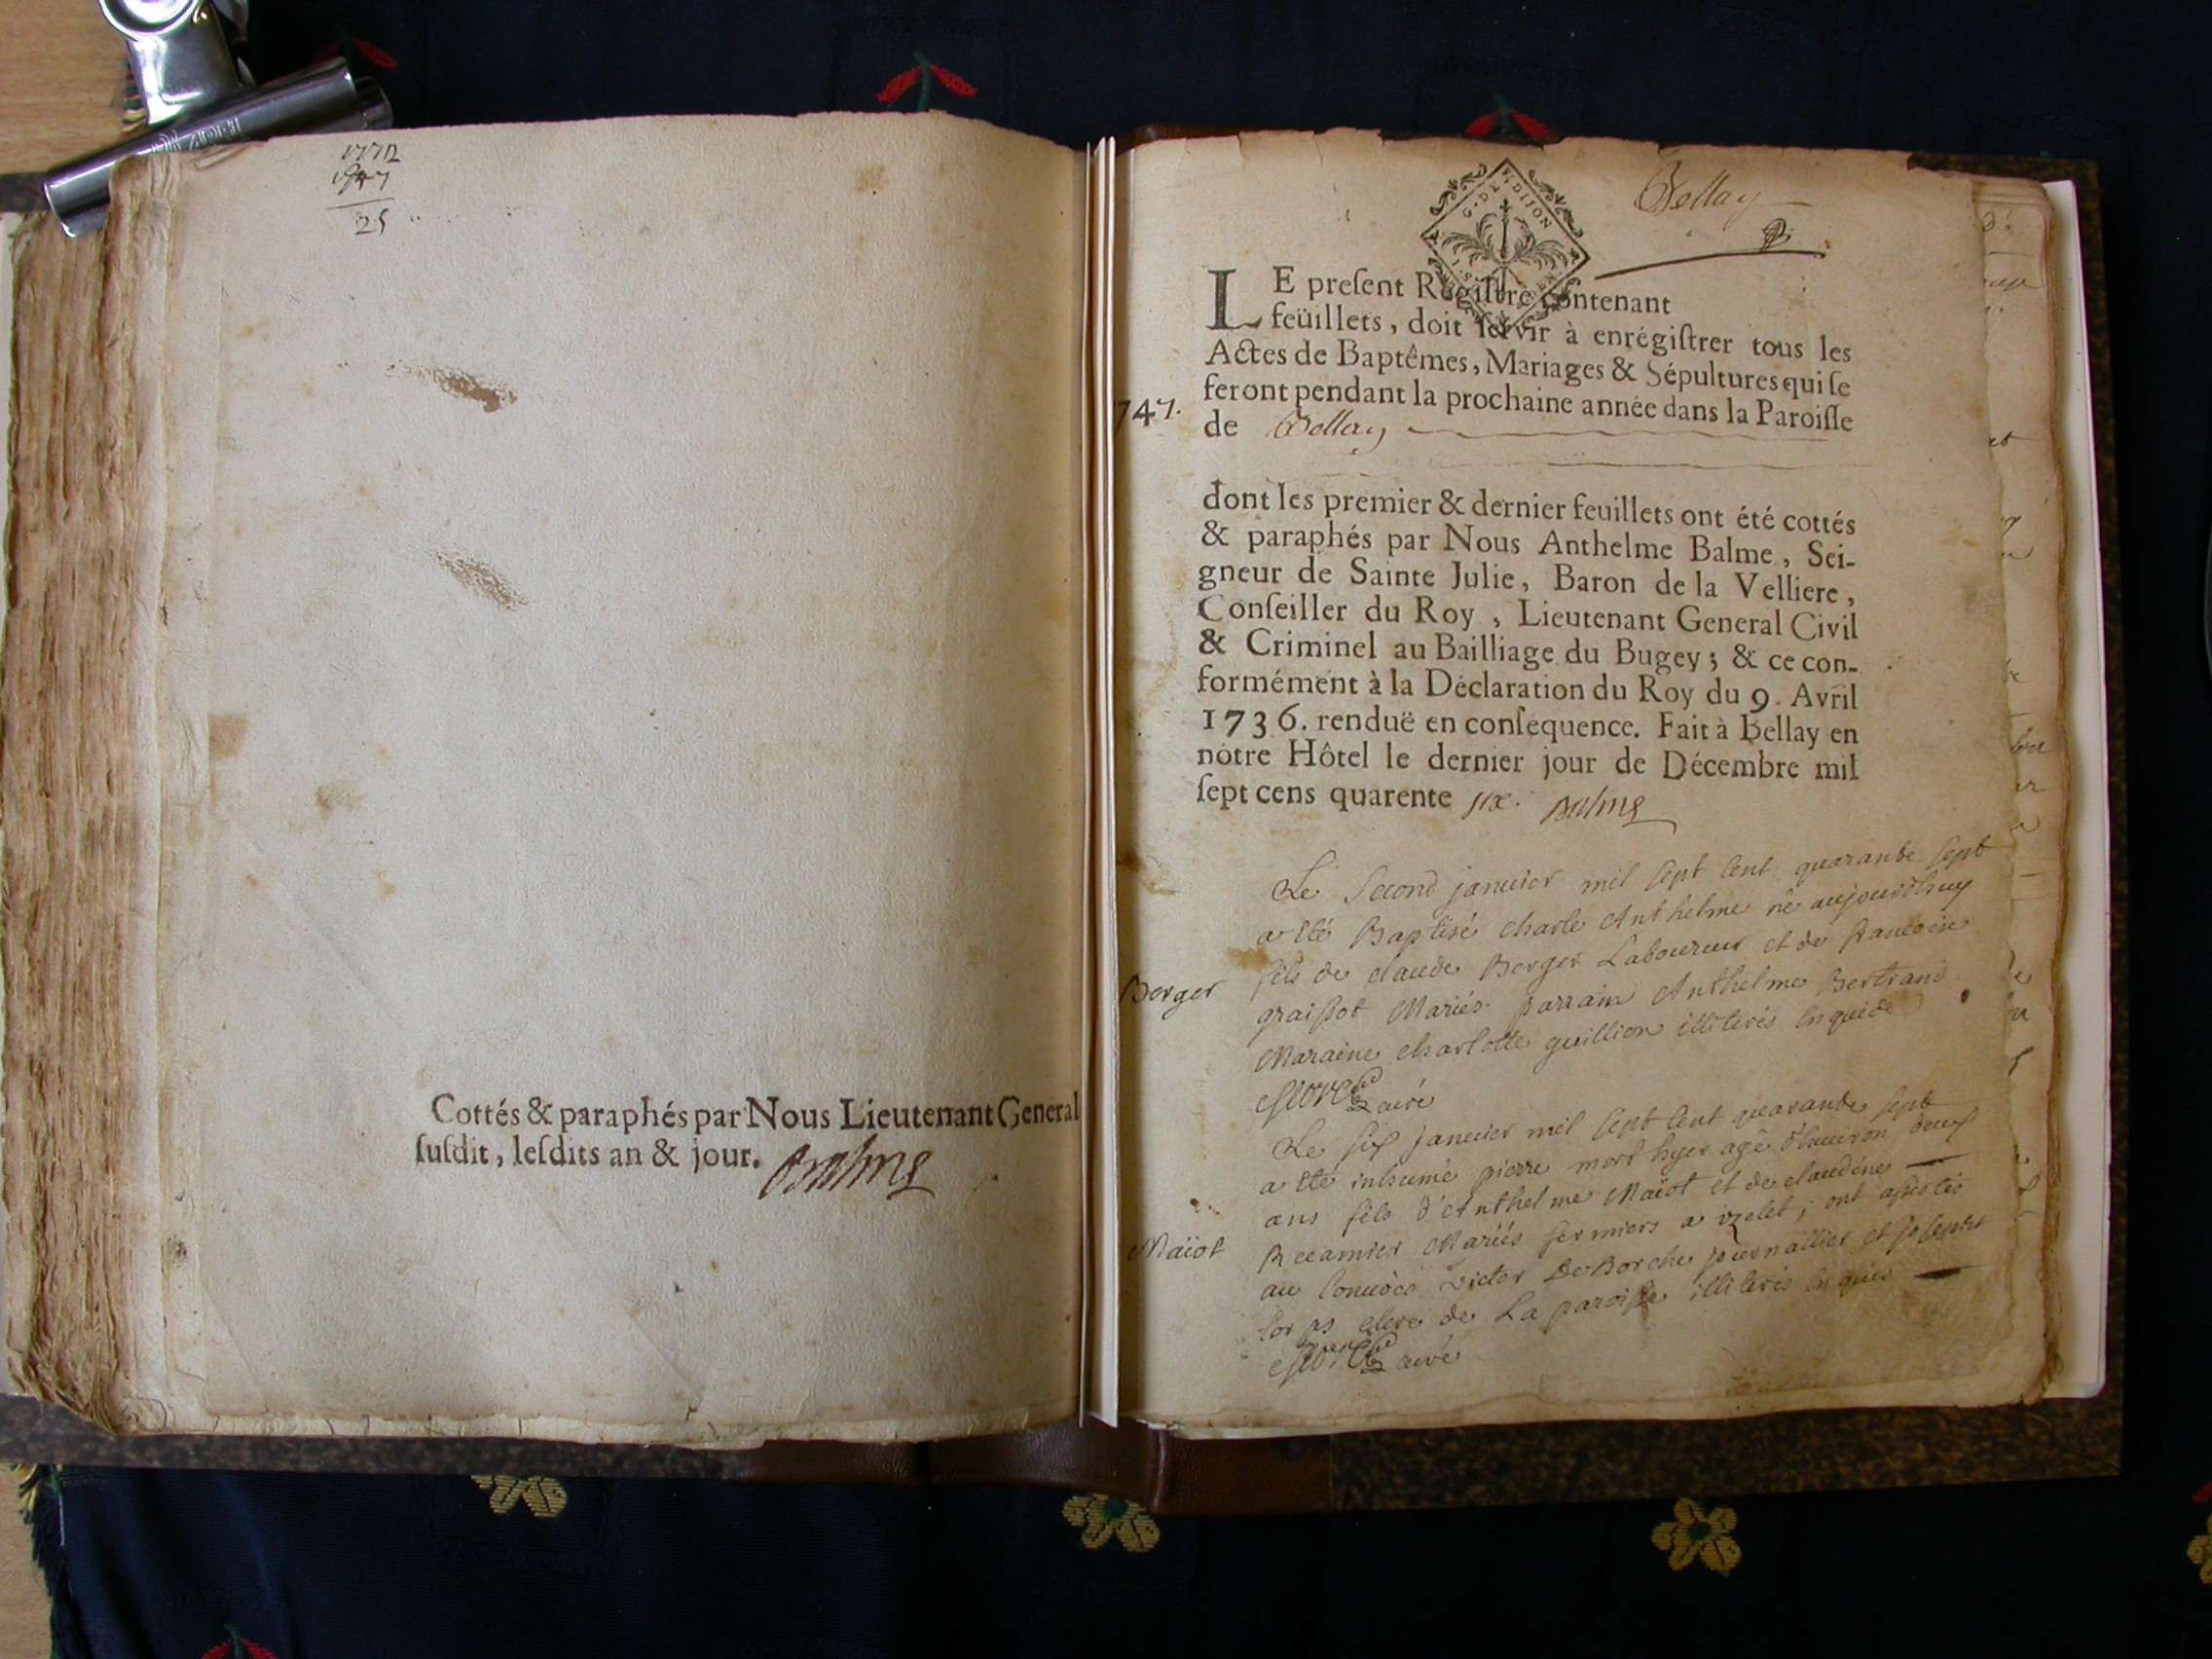 1772
1747
25
Cottés & paraphés par Nous Lieutenant General
ſuſdit, leſdits an & jour. Balme
G. DE DIJON
Bellay
LE preſent Regiſtre contenant
feüillets, doit ſervir à enrégiſtrer tous les
Actes de Baptêmes, Mariages & Sépultures qui ſe
feront pendant la prochaine année dans la Paroiſſe
747.
de Bellay
dont les premier & dernier feuillets ont été cottés
& paraphés par Nous Anthelme Balme, Sei-
gneur de Sainte Julie, Baron de la Velliere,
Conſeiller du Roy, Lieutenant General Civil
& Criminel au Bailliage du Bugey; & ce con-
formément à la Déclaration du Roy du 9. Avril
1736. renduë en conſequence. Fait à Bellay en
nôtre Hôtel le dernier jour de Décembre mil
ſept cens quarente six. Balme
Le second janvier mil sept cent quarante sept
a été Baptisé charle Anthelme né aujourdhuy
Berger
fils de claude Berger Laboureur et de francoise
graissot Mariés. parrain Anthelme Bertrand
Maraine charlotte guillion illiterés enquis
curé
Le six janvier mil sept cent quarante sept
a été inhumé pierre mort hyer agé d'environ deux
ans fils d'Anthelme Maïot et de claudine
Maïot
Recamier Mariés fermiers a ; ont assistés
au convoes victor DeBorche journallier et joseph
clerc de La paroisse illiterés enquis
curé